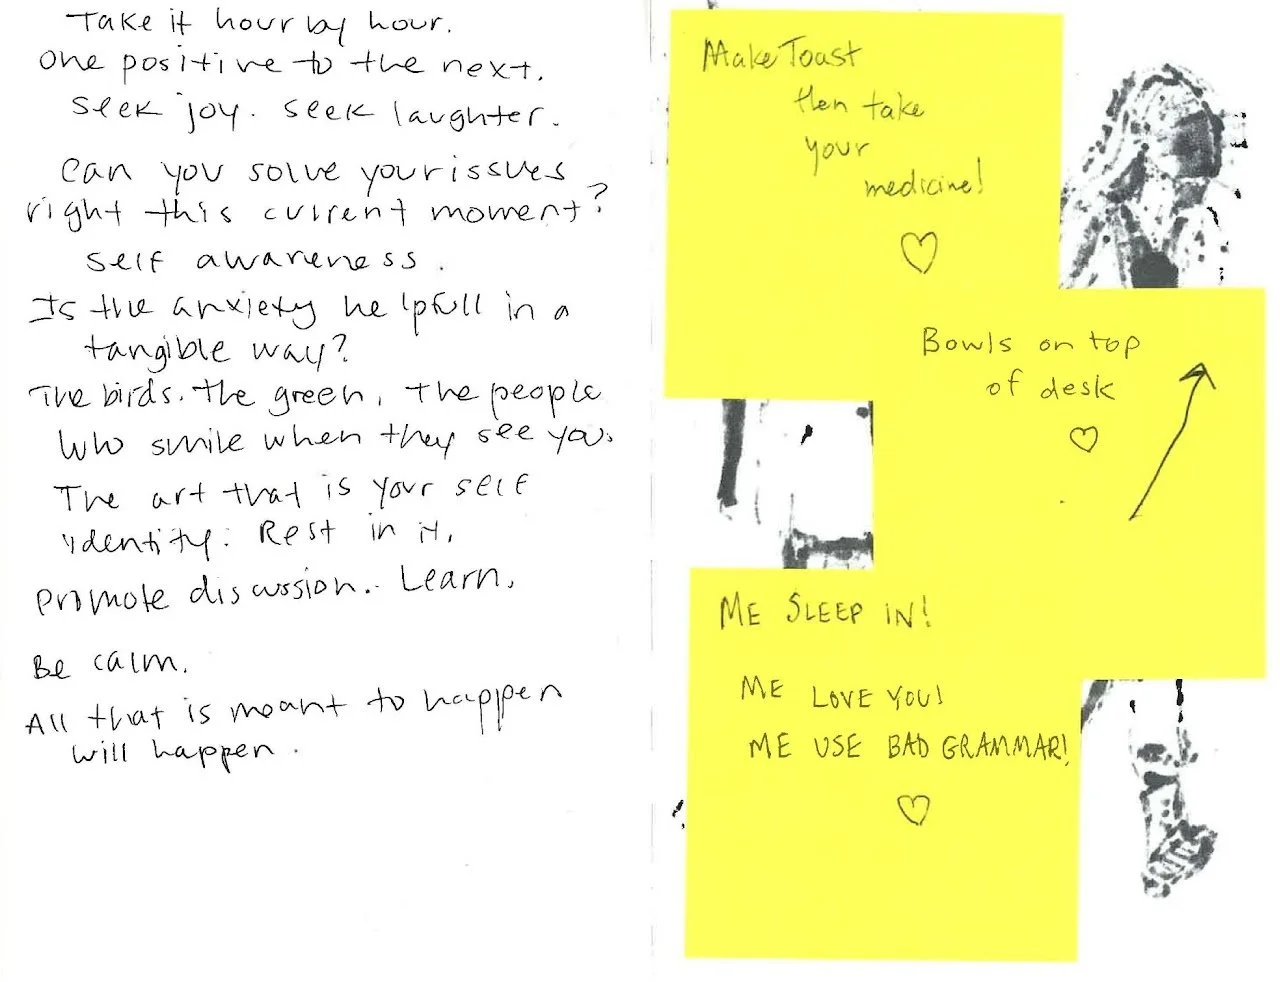 Take it hour by hour.
One positive to the next.
Seek joy. Seek laughter.
Can you solve your issues
right this current moment?
Self awareness.
Is the anxiety helpfull in a
tangible way?
The birds. The green. The people
who smile when they see you.
The art that is your self
identity. Rest in it.
Promote discussion. Learn.
Be calm.
All that is meant to happen
will happen.
Make Toast
then take
your
medicine!
Bowls on top
of desk
ME SLEEP IN!
ME LOVE YOU!
ME USE BAD GRAMMAR!